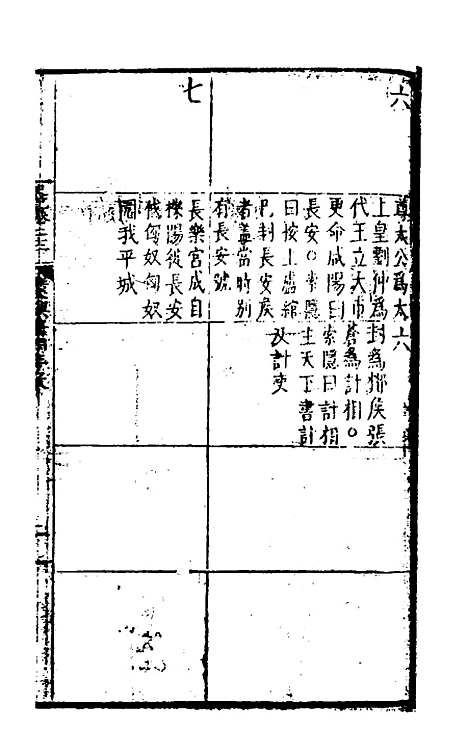 六
尊太公爲太
上皇劉仲爲
代王立大市
更命咸陽曰
長安○索隱
曰按上盧綰
已封長安侯
者蓋當時別
有長安號
六
封爲酇侯張
蒼爲計相○
索隱曰計相
主天下書計
及計吏
七
長樂宮成自
櫟陽徙長安
伐匈奴匈奴
圍我平城